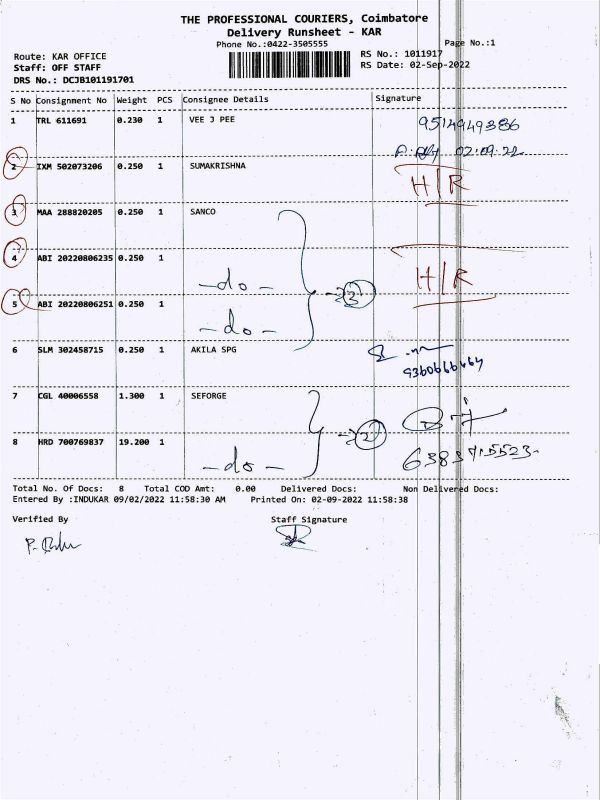 THE PROFESSIONAL COURIERS, Coimbatore
Delivery Runsheet - KAR
Phone No.:0422-3505555
Page No.:1
Route: KAR OFFICE
RS No.: 1011917
Staff: OFF STAFF
RS Date: 02-Sep-2022
DRS No.: DCJB101191701
S No Consignment No Weight PCS Consignee Details Signature
1 TRL 611691 0.230 1 VEE J PEE 9514949386
02.09.22
2 IXM 502073206 0.250 1 SUMAKRISHNA H/R
3 MAA 288820205 0.250 1 SANCO
4 ABI 20220806235 0.250 1 H/R
-do-
→ 3
5 ABI 20220806251 0.250 1
-do-
6 SLM 302458715 0.250 1 AKILA SPG
9360666464
7 CGL 40006558 1.300 1 SEFORGE
→ 2
8 HRD 700769837 19.200 1
-do- 6383715523-
Total No. Of Docs: 8 Total COD Amt: 0.00 Delivered Docs: Non Delivered Docs:
Entered By :INDUKAR 09/02/2022 11:58:30 AM Printed On: 02-09-2022 11:58:38
Verified By Staff Signature